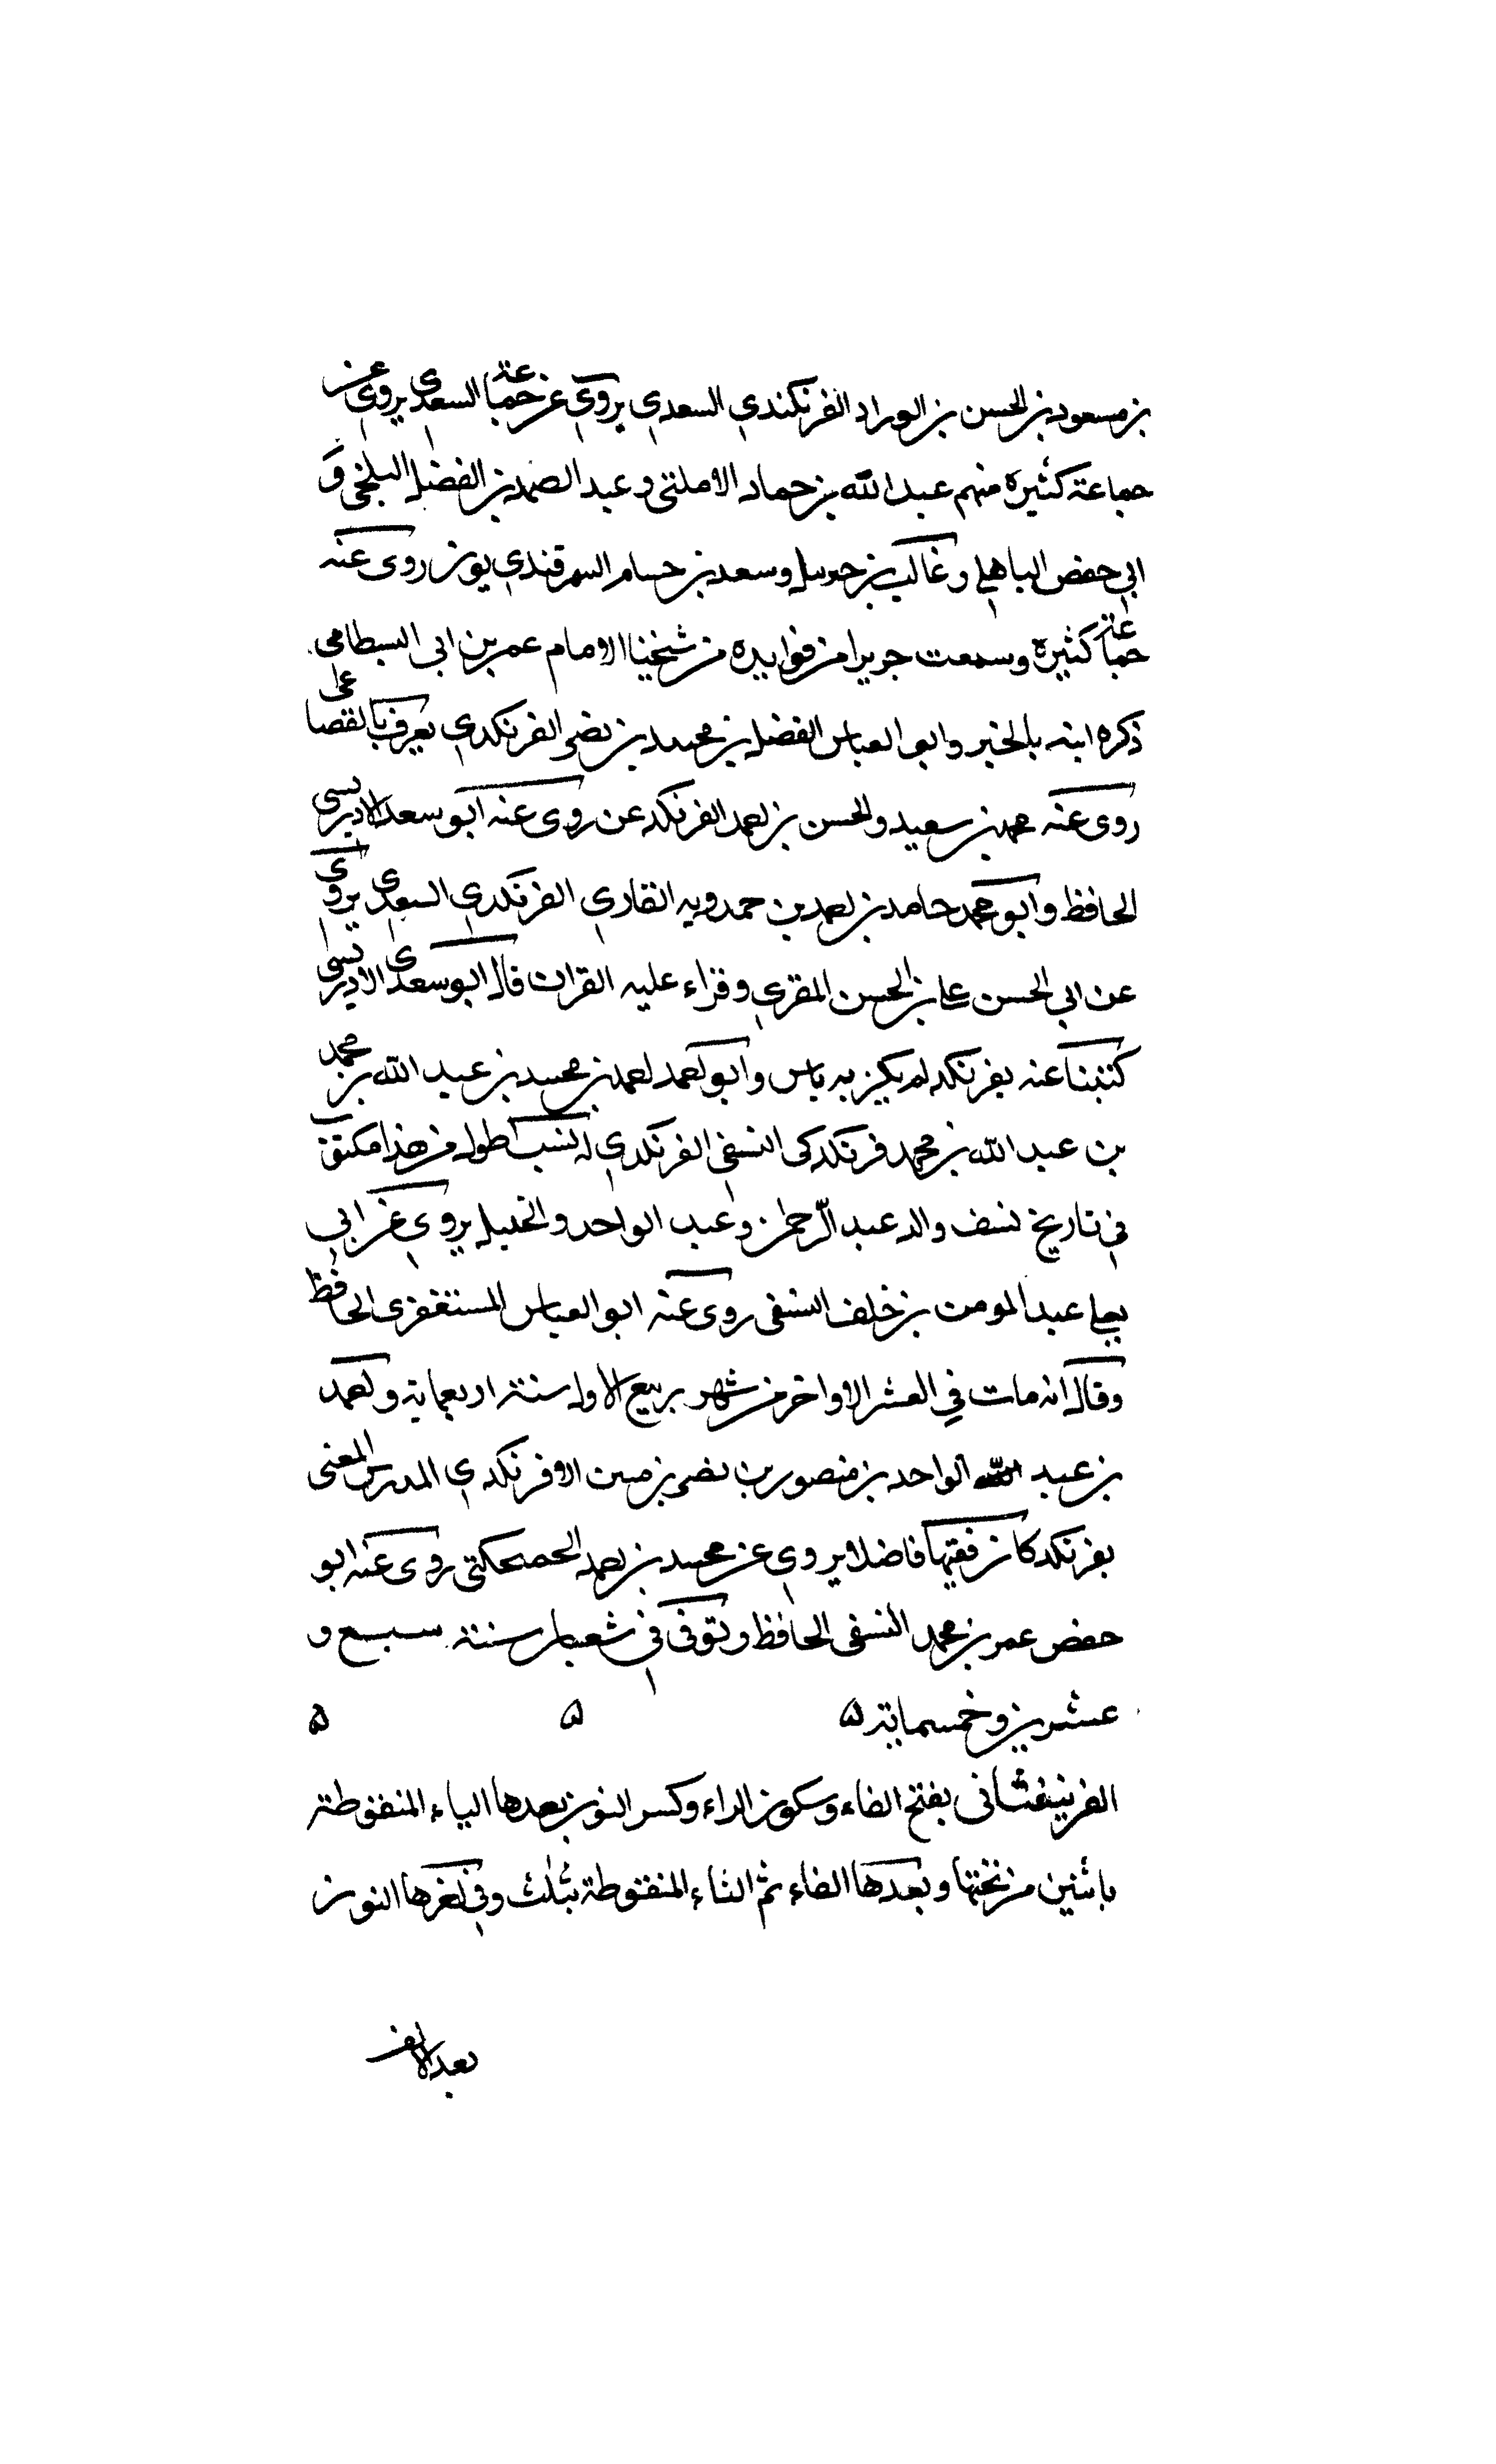 بن مسعود بن الحسن بن الوراد الفرنكندي السعدي يروي عن جماعة السعدي يروي عن
جماعة كثيرة منهم عبد الله بن حماد الاملتى و عبد الصمد بن الفضل البلخى و
ابي حفص الباهلي و غالب بن حوسل وسعد بن حسام السمرقندي يون روى عنه
جماعة كثيرة وسمعت جريرا من فوايده من شيخنا الامام عمر بن ابي البسطامى
ذكره ابنه بالخير وابو العباس الفضل بن محمد بن نصر الفرنكدي يعرف بالقصا على
روى عنه محمد بن سعيد والحسن بن احمد الفرنكد عن روى عنه ابو سعد الادريسى
الحافظ وابو محمد حامد بن احمد بن حمدويه القاري الفرنكدي السعدي يروى
عن ابي الحسن علي بن الحسن المقري وقراء عليه القران قال ابو سعدى الادريسى
كتبنا عنه بفرنكد لم يكن به باس وابو احمد احمد بن محمد بن عبد الله بن محمد
بن عبد الله بن محمد فرنكدكى النسفى الفرنكدي له نسب اطول من هذا مكتوب
في تاريخ نسف والد عبد الرحمن وعبد الواحد والخليل يروي عن ابي
يعلي عبد المومن بن خلف النسفى روى عنه ابو العباس المستغفرى الحافظ
وقال انه مات في العشر الاواخر من شهر ربيع الاول سنة اربعماية واحمد
بن عبد الله الواحد بن منصور بن نصر بن مت الافرنكدي المدرس المعنى
بفرنكد كان فقيها فاضلا يروي عن محمد بن احمد الحصحكتى روى عنه ابو
حفص عمر بن محمد النسفى الحافظ وتوفى في شعبان سنة سبع و
عشرين وخمسماية ۵ ۵ ۵
الفرنيفثانى بفتح الفاء وسكون الراء وكسر النون بعدها الياء المنقوطة
باثنين من تحتها وبعدها الفاء ثم الثاء المنقوطة بثلث وفي اخرها النون
بعد الالف